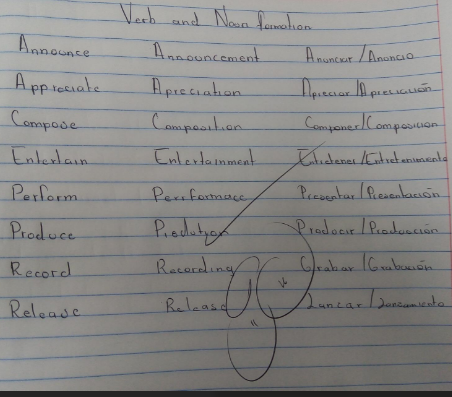 Verb and Noun formation
Announce Announcement Anunciar/Anuncio
Appreciate Apreciation Apreciar/Apreciación
Compose Composition Componer/Composicion
Entertain Entertainment Entretener/Entretenimiento
Perform Perrformace Presentar/Presentación
Produce Prodution Producir/Producción
Record Recording Grabar/Grabación
Release Release Lanzar/Lanzamiento